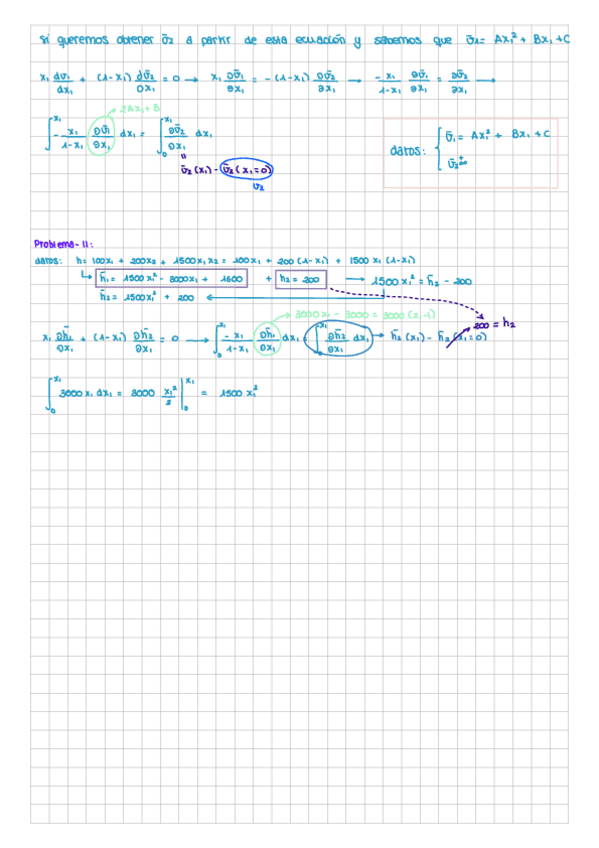 Si queremos obtener v̄2 a partir de esta ecuación y sabemos que v̄1 = Ax1² + Bx1 + C
x1 dv̄1/dx1 + (1-x1) dv̄2/∂x1 = 0 → x1 ∂v̄1/∂x1 = -(1-x1) ∂v̄2/∂x1 → -x1/1-x1 ∂v̄1/∂x1 = ∂v̄2/∂x1 →
2Ax1+B
∫₀^x1 -x1/1-x1 ∂v̄1/∂x1 dx1 = ∫₀^x1 ∂v̄2/∂x1 dx1
datos: { v̄1 = Ax1² + Bx1 + C
v̄2
v̄2(x1) - v̄2(x1=0)
v2
Problema-11:
datos: h = 100x1 + 200x2 + 1500x1x2 = 100x1 + 200(1-x1) + 1500 x1 (1-x1)
h̄1 = 1500x1² - 3000x1 + 1600 + h2 = 200 → 1500x1² = h̄2 - 200
h̄2 = 1500x1² + 200 ←
3000x1 - 3000 = 3000(x1-1)
200 = h2
x1 ∂h̄1/∂x1 + (1-x1) ∂h̄2/∂x1 = 0 → ∫₀^x1 -x1/1-x1 ∂h̄1/∂x1 dx1 = ∫₀^x1 ∂h̄2/∂x1 dx1 → h̄2(x1) - h̄2(x1=0)
∫₀^x1 3000x1 dx1 = 3000 x1²/2 |₀^x1 = 1500 x1²